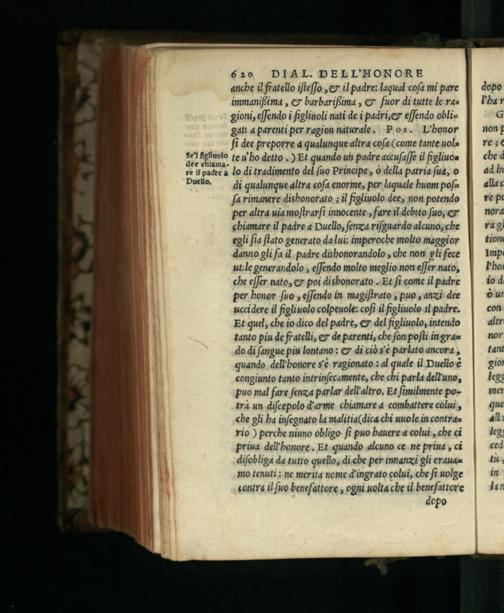 620 DIAL. DELL'HONORE
anche il fratello iſteſſo, & il padre: laqual coſa mi pare
immaniſſima, & barbariſſima, & fuor di tutte le ra-
gioni, eſſendo i figliuoli nati de i padri, & eſſendo obli-
gati a parenti per ragion naturale. Pos. L'honor
ſi dee preporre a qualunque altra coſa (come tante uol-
te u'ho detto.) Et quando un padre accuſaſſe il figliuo-
lo di tradimento del ſuo Principe, ò della patria ſua, o
di qualunque altra coſa enorme, per laquale huom poſ-
ſa rimanere dishonorato; il figliuolo dee, non potendo
per altra uia moſtrarſi innocente, fare il debito ſuo, &
chiamare il padre a Duello, ſenza riſguardo alcuno, che
egli ſia ſtato generato da lui: imperoche molto maggior
danno gli fa il padre dishonorandolo, che non gli fece
utile generandolo, eſſendo molto meglio non eſſer nato,
che eſſer nato, & poi dishonorato. Et ſi come il padre
per honor ſuo, eſſendo in magiſtrato, puo, anzi dee
uccidere il figliuolo colpeuole: coſi il figliuolo il padre.
Et quel, che io dico del padre, & del figliuolo, intendo
tanto piu de fratelli, & de parenti, che ſon poſti in gra-
do di ſangue piu lontano: & di ciò s'è parlato ancora,
quando dell'honore s'è ragionato: al quale il Duello è
congiunto tanto intrinſecamente, che chi parla dell'uno,
puo mal fare ſenza parlar dell'altro. Et ſimilmente po-
trà un diſcepolo d'arme chiamare a combattere colui,
che gli ha inſegnato la malitia (dica chi uuole in contra-
rio) perche niuno obligo ſi puo hauere a colui, che ci
priua dell'honore. Et quando alcuno ce ne priua, ci
diſobliga da tutto quello, di che per innanzi gli eraua-
mo tenuti: ne merita nome d'ingrato colui, che ſi uolge
contra il ſuo benefattore, ogni uolta che il benefattore
dopo
Se'l figliuolo
dee chiama-
re il padre a
Duello.
dopo
l'ha r